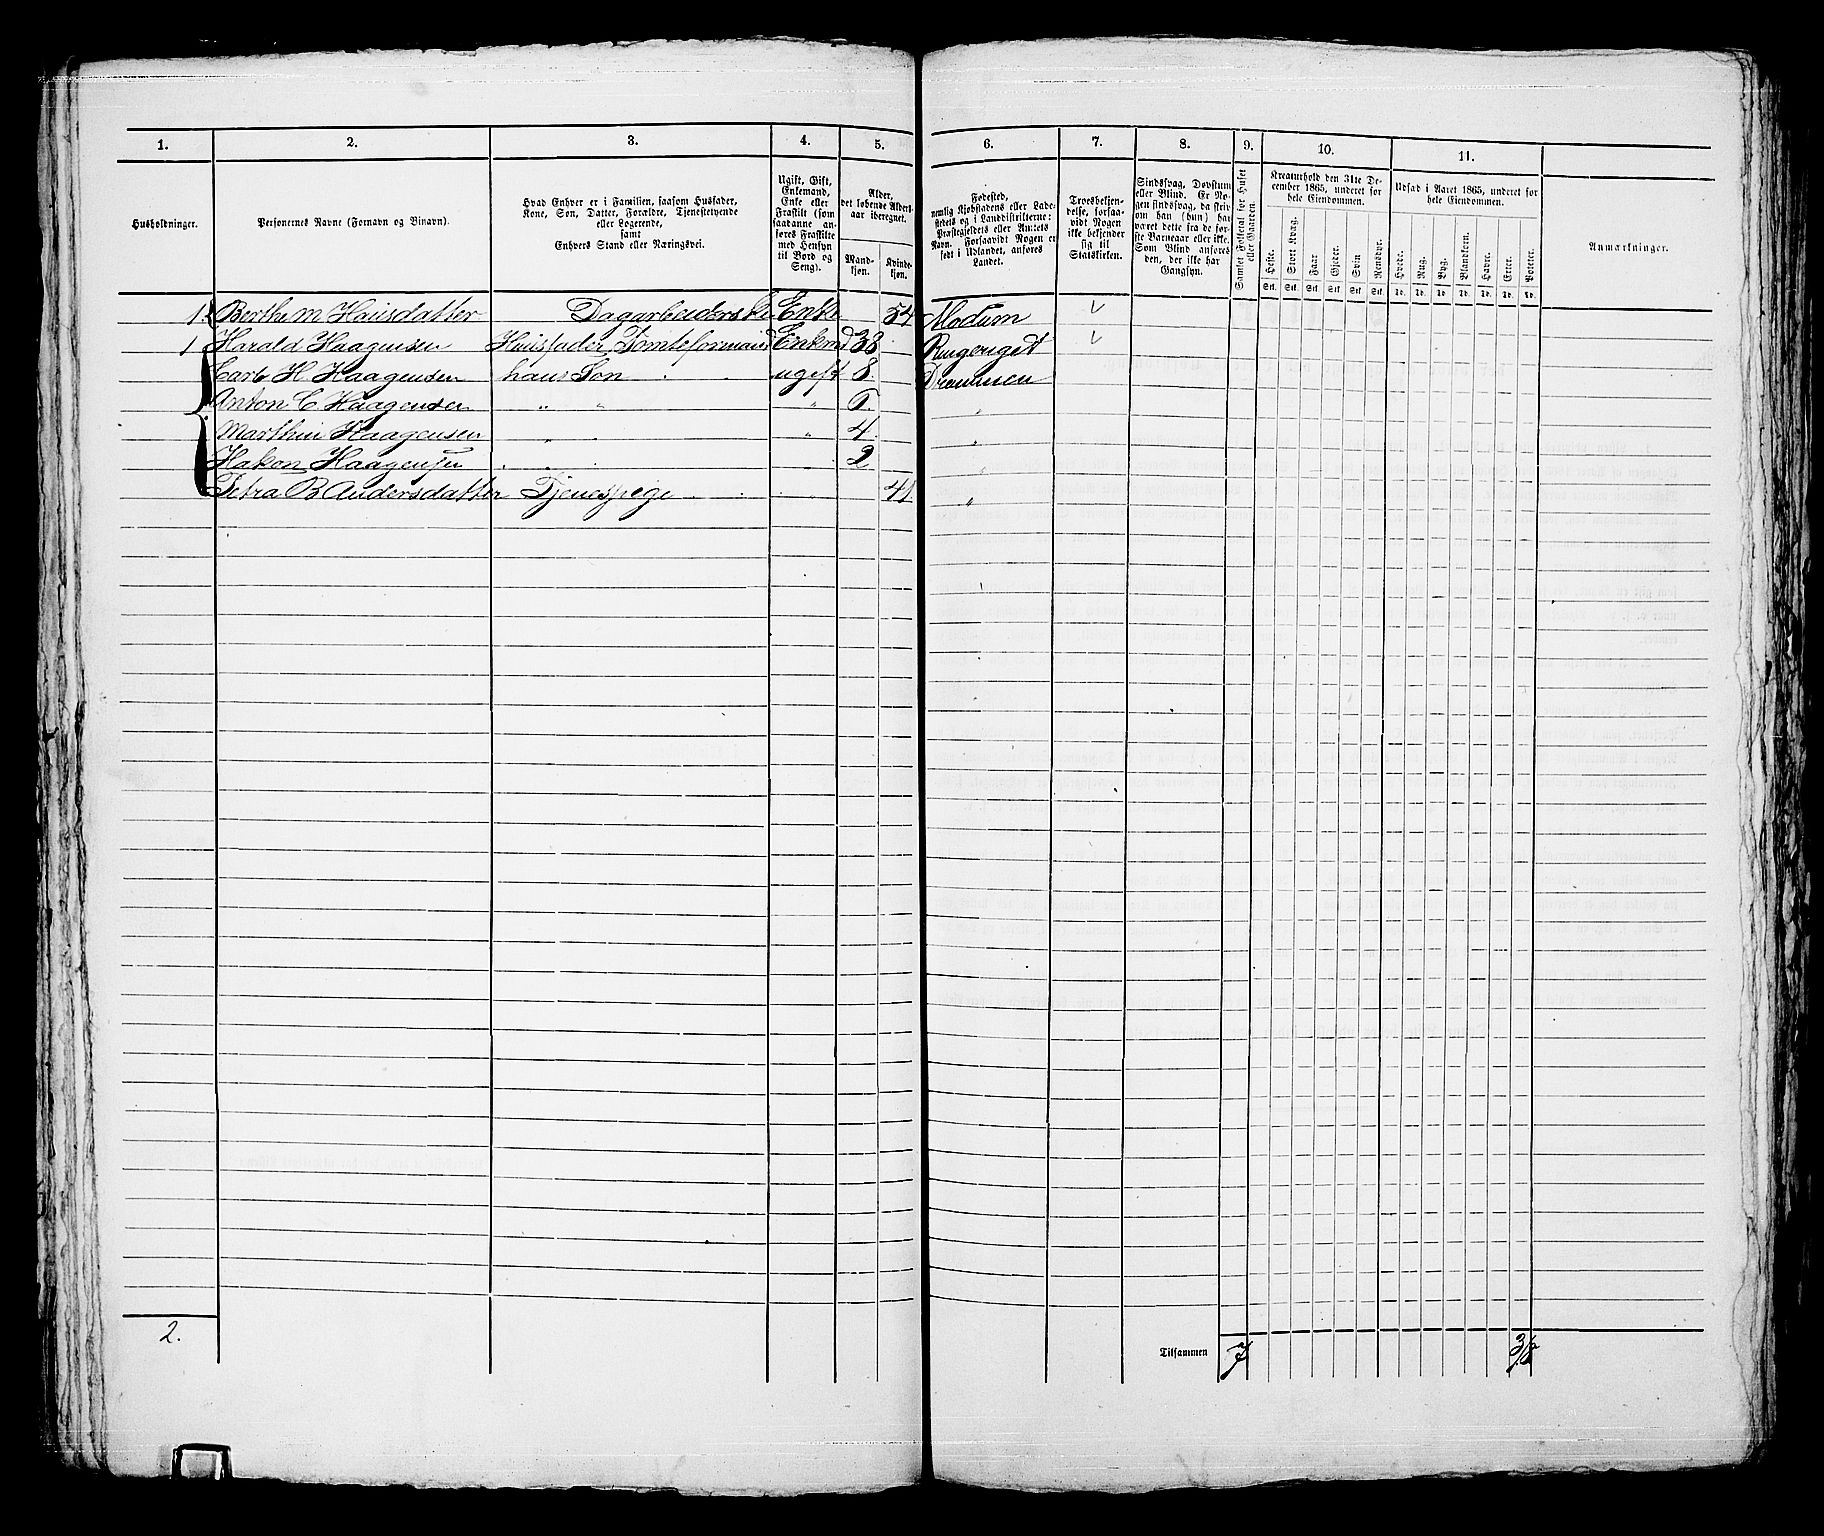 1. 2. 3. 4. 5. 6. 7. 8. 9. 10. 11.
Husholdninger.
Personernes Navne (Fornavn og Binavn).
Hvad Enhver er i Familien, saasom Husfader,
Kone, Søn, Datter, Forældre, Tjenestetyende
eller Logerende,
samt
Enhvers Stand eller Næringsvei.
Ugift, Gift,
Enkemand,
Enke eller
Fraskilt (som
saadanne an-
føres Fraskilte
med Hensyn
til Bord og
Seng).
Alder,
det løbende Alders-
aar iberegnet.
Mand-
kjøn.
Kvinde-
kjøn.
Fødested,
nemlig Kjøbstadens eller Lade-
stedets og i Landdistrikterne:
Præstegjeldets eller Amtets
Navn. Forsaavidt Nogen er
født i Udlandet, anføres
Landet.
Troesbekjen-
delse, forsaa-
vidt Nogen
ikke bekjender
sig til
Statskirken.
Sindssvag, Døvstum
eller Blind. Er No-
gen sindssvag, da skriv
om han (hun) har
været dette fra de før-
ste Barneaar eller ikke.
Som Blind anføres
den, der ikke har
Gangsyn.
Samlet Folketal for Huset
eller Gaarden.
Kreaturhold den 31te De-
cember 1865, underet for
hele Eiendommen.
Heste. Stort Kvæg. Faar Gjeder. Svin Rensdyr.
Stk. Stk. Stk. Stk. Stk. Stk.
Udsæd i Aaret 1865, underet for
hele Eiendommen.
Hvede. Rug. Byg. Blandkorn. Havre. Erter. Poteter.
Td. Td. Td. Td. Td. Td. Td.
Anmærkninger.
1. Berthe M. Hansdatter Dagarbeiderske Enke 54 Modum
1 Harald Haagensen Huusfader, Tomteformand Enkmd 38 Ringeriget
Carl H. Haagensen hans Søn ugift 8. Drammen
Anton C. Haagensen „ „ „ „
Marthin Haagensen „ „ „ 4. „
Hakon Haagensen 2 „
Petra B Andersdatter Tjenespige 41. „
2.
Tilsammen 7 3/8